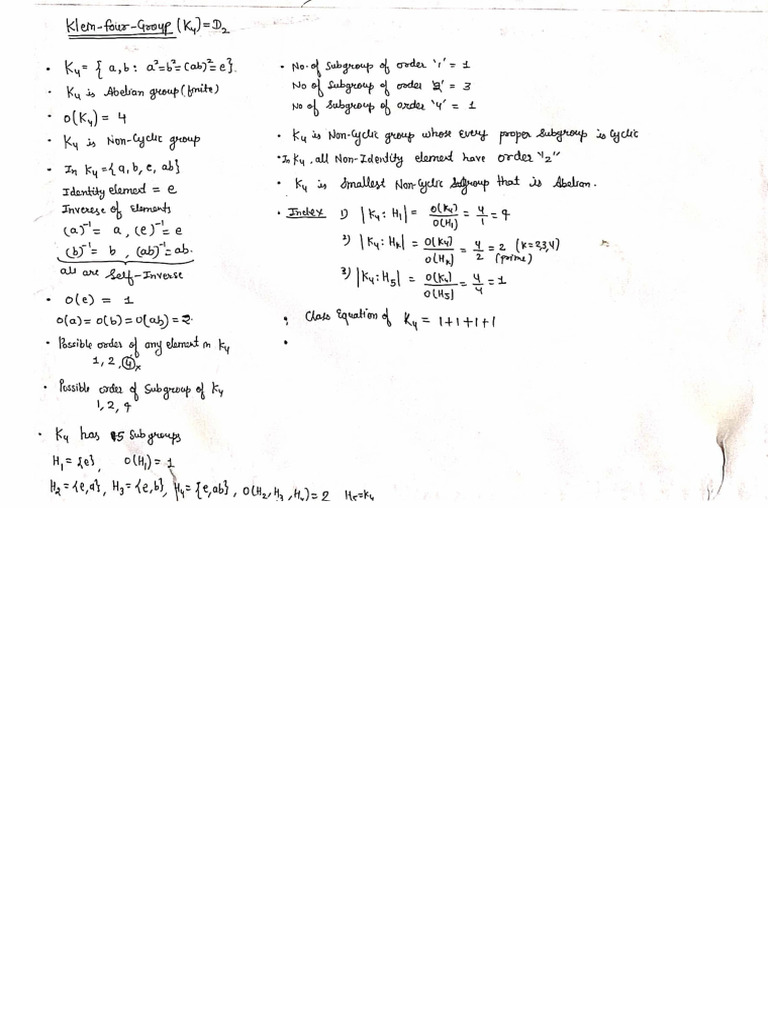 Klein-four-Group (K₄) = D₂
• K₄ = { a, b : a² = b² = (ab)² = e}.
• K₄ is Abelian group (finite)
• O(K₄) = 4
• K₄ is Non-Cyclic group
• In K₄ = {a, b, e, ab}
Identity element = e
Inverese of Elements
(a)⁻¹ = a , (e)⁻¹ = e
(b)⁻¹ = b , (ab)⁻¹ = ab.
all are Self-Inverse
• O(e) = 1
O(a) = O(b) = O(ab) = 2.
• Possible order of any element in K₄
1, 2, 4×
• Possible order of Subgroup of K₄
1, 2, 4
• K₄ has 5 Subgroups
H₁ = {e}, O(H₁) = 1
H₂ = {e,a}, H₃ = {e,b}, H₄ = {e,ab}, O(H₂, H₃, H₄) = 2 H₅ = K₄
• No. of Subgroup of order '1' = 1
No of Subgroup of order '2' = 3
No of Subgroup of order '4' = 1
• K₄ is Non-Cyclic group whose every proper Subgroup is Cyclic
• In K₄, all Non-Identity element have order "2"
• K₄ is Smallest Non-Cyclic Subgroup that is Abelian.
• Index 1) |K₄ : H₁| = O(K₄)/O(H₁) = 4/1 = 4
2) |K₄ : Hₖ| = O(K₄)/O(Hₖ) = 4/2 = 2 (K = 2,3,4) (prime)
3) |K₄ : H₅| = O(K₄)/O(H₅) = 4/4 = 1
• Class Equation of K₄ = 1+1+1+1
•